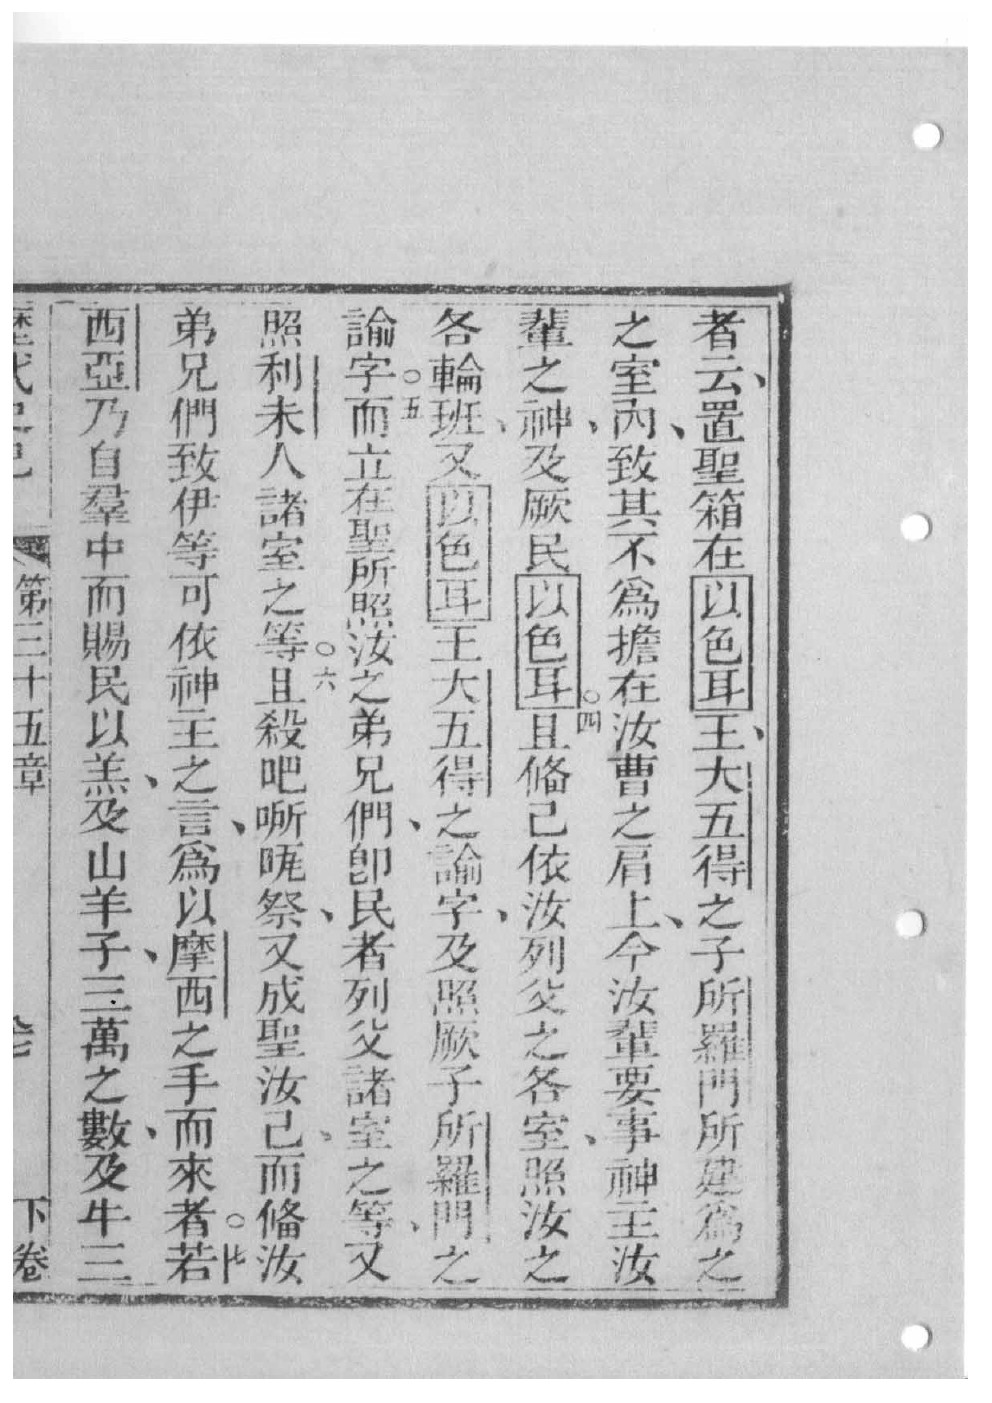 者云、置聖箱在以色耳王、大五得之子所羅門所建爲之
之室內、致其不爲擔在汝曹之肩上、今汝輩要事神主汝
輩之神、及厥民以色耳○四且俻己依汝列父之各室、照汝之
各輪班、又以色耳王大五得之諭字、及照厥子所羅門之
諭字○五而立在聖所照汝之弟兄們、卽民者列父諸室之等、又
照利未人諸室之等○六且殺吧㗫㖠祭、又成聖汝己、而俻汝
弟兄們致伊等可依神主之言、爲以摩西之手而來者○七若
西亞乃自羣中而賜民以羔、及山羊子、三萬之數、及牛三
歷代史記 第三十五章 下卷